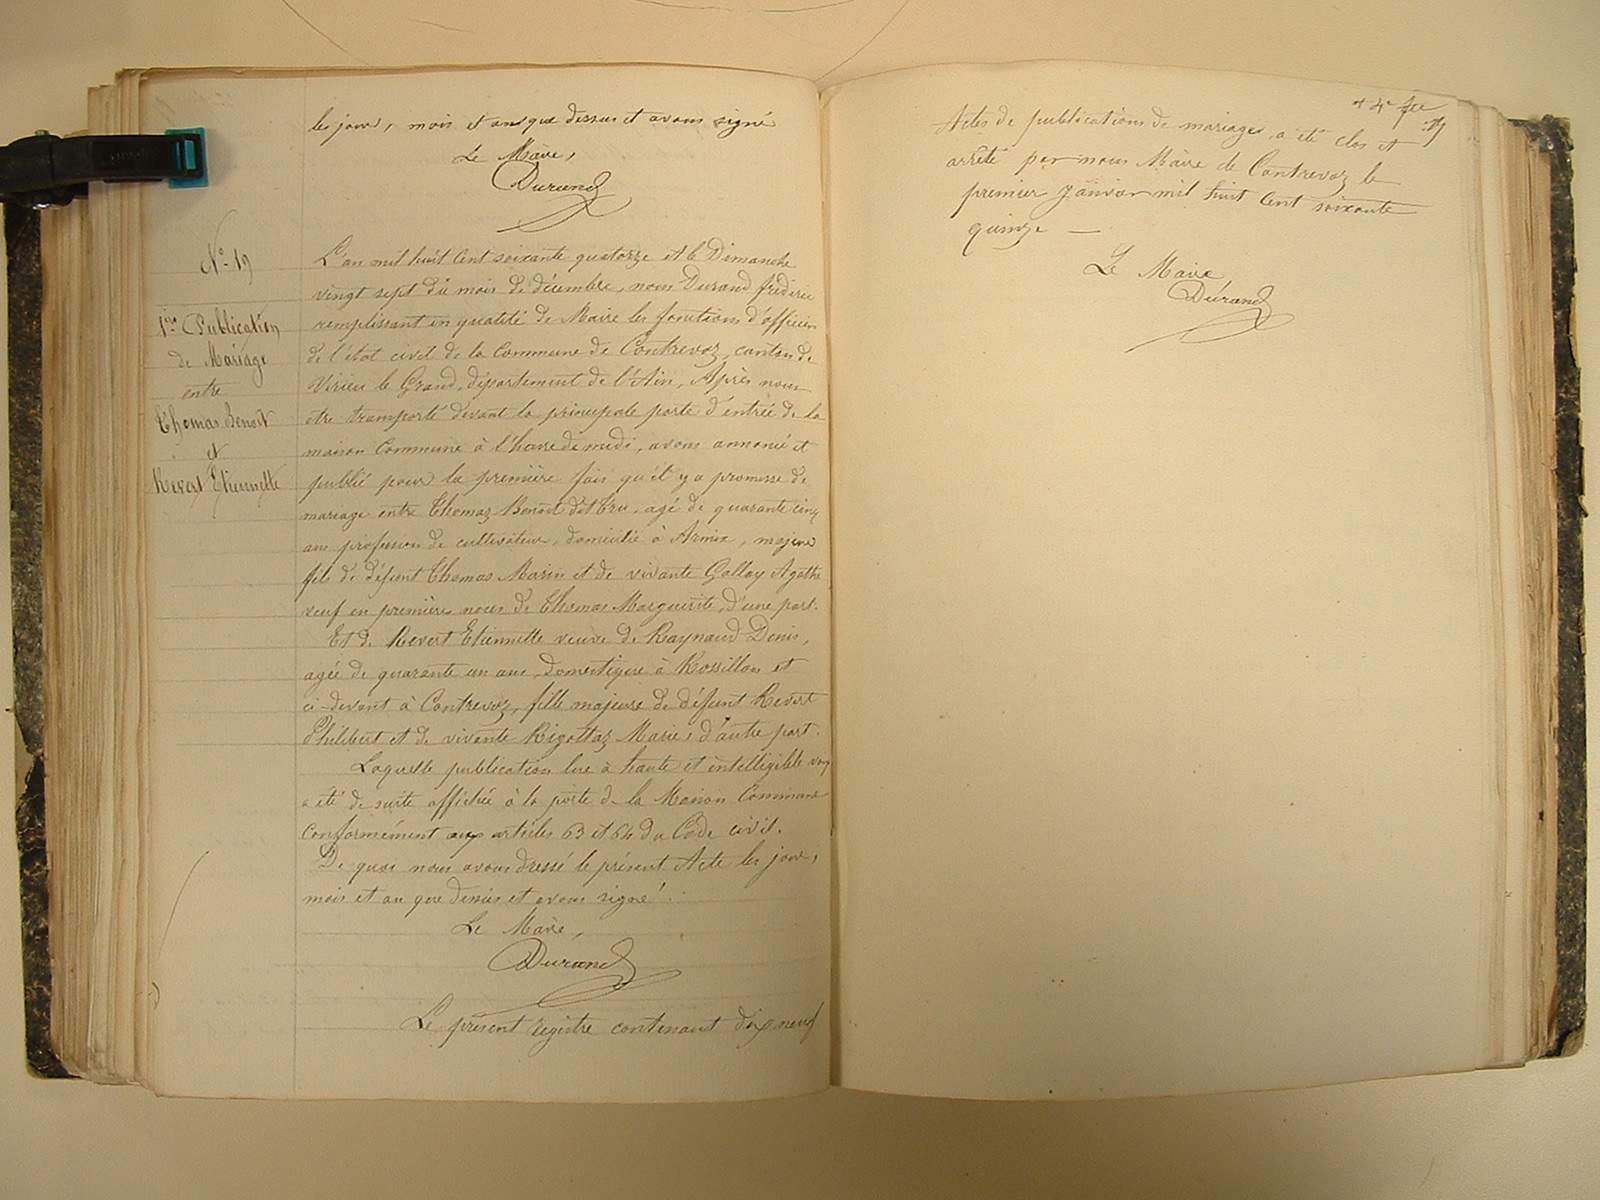 les jour, mois et an que dessus et avons signé
Le Maire,
Durand
No 19
1ère Publication
de Mariage
entre
Thomas Benoit
et
Revert Etiennette
L'an mil huit cent soixante quatorze et le Dimanche
vingt sept du mois de décembre, nous Durand frédéric
remplissant en qualité de Maire les fonctions d'officier
de l'état civil de la Commune de Contrevoz, canton de
Virieu le Grand, département de l'Ain, Après nous
etre transporté devant la principale porte d'entrée de la
maison Commune à l'heure de midi, avons annoncé et
publié pour la première fois qu'il y a promesse de
mariage entre Thomas Benoit dit Cru, agé de quarante cinq
ans profession de cultivateur, domicilié à Armix, majeur
fils de défunt Thomas Marin et de vivante Gallay Agathe
veuf en premières noces de Thomas Marguerite, d'une part.
Et de Revert Etiennette veuve de Raynaud Denis,
agée de quarante un ans, domestique à Rossillon et
ci-devant à Contrevoz, fille majeure de défunt Revert
Philibert et de vivante Rigottaz Marie, d'autre part.
Laquelle publication lue à haute et intelligible voix
a été de suite affichée à la porte de la Maison Commune
conformément aux articles 63 et 64 du Code civil.
De quoi nous avons dressé le présent Acte les jour,
mois et an que dessus et avons signé.
Le Maire,
Durand
Le présent registre contenant dix neuf
4e fee
Actes de publications de mariages, a été clos et
arrêté par nous Maire de Contrevoz le
premier janvier mil huit cent soixante
quinze
Le Maire
Durand